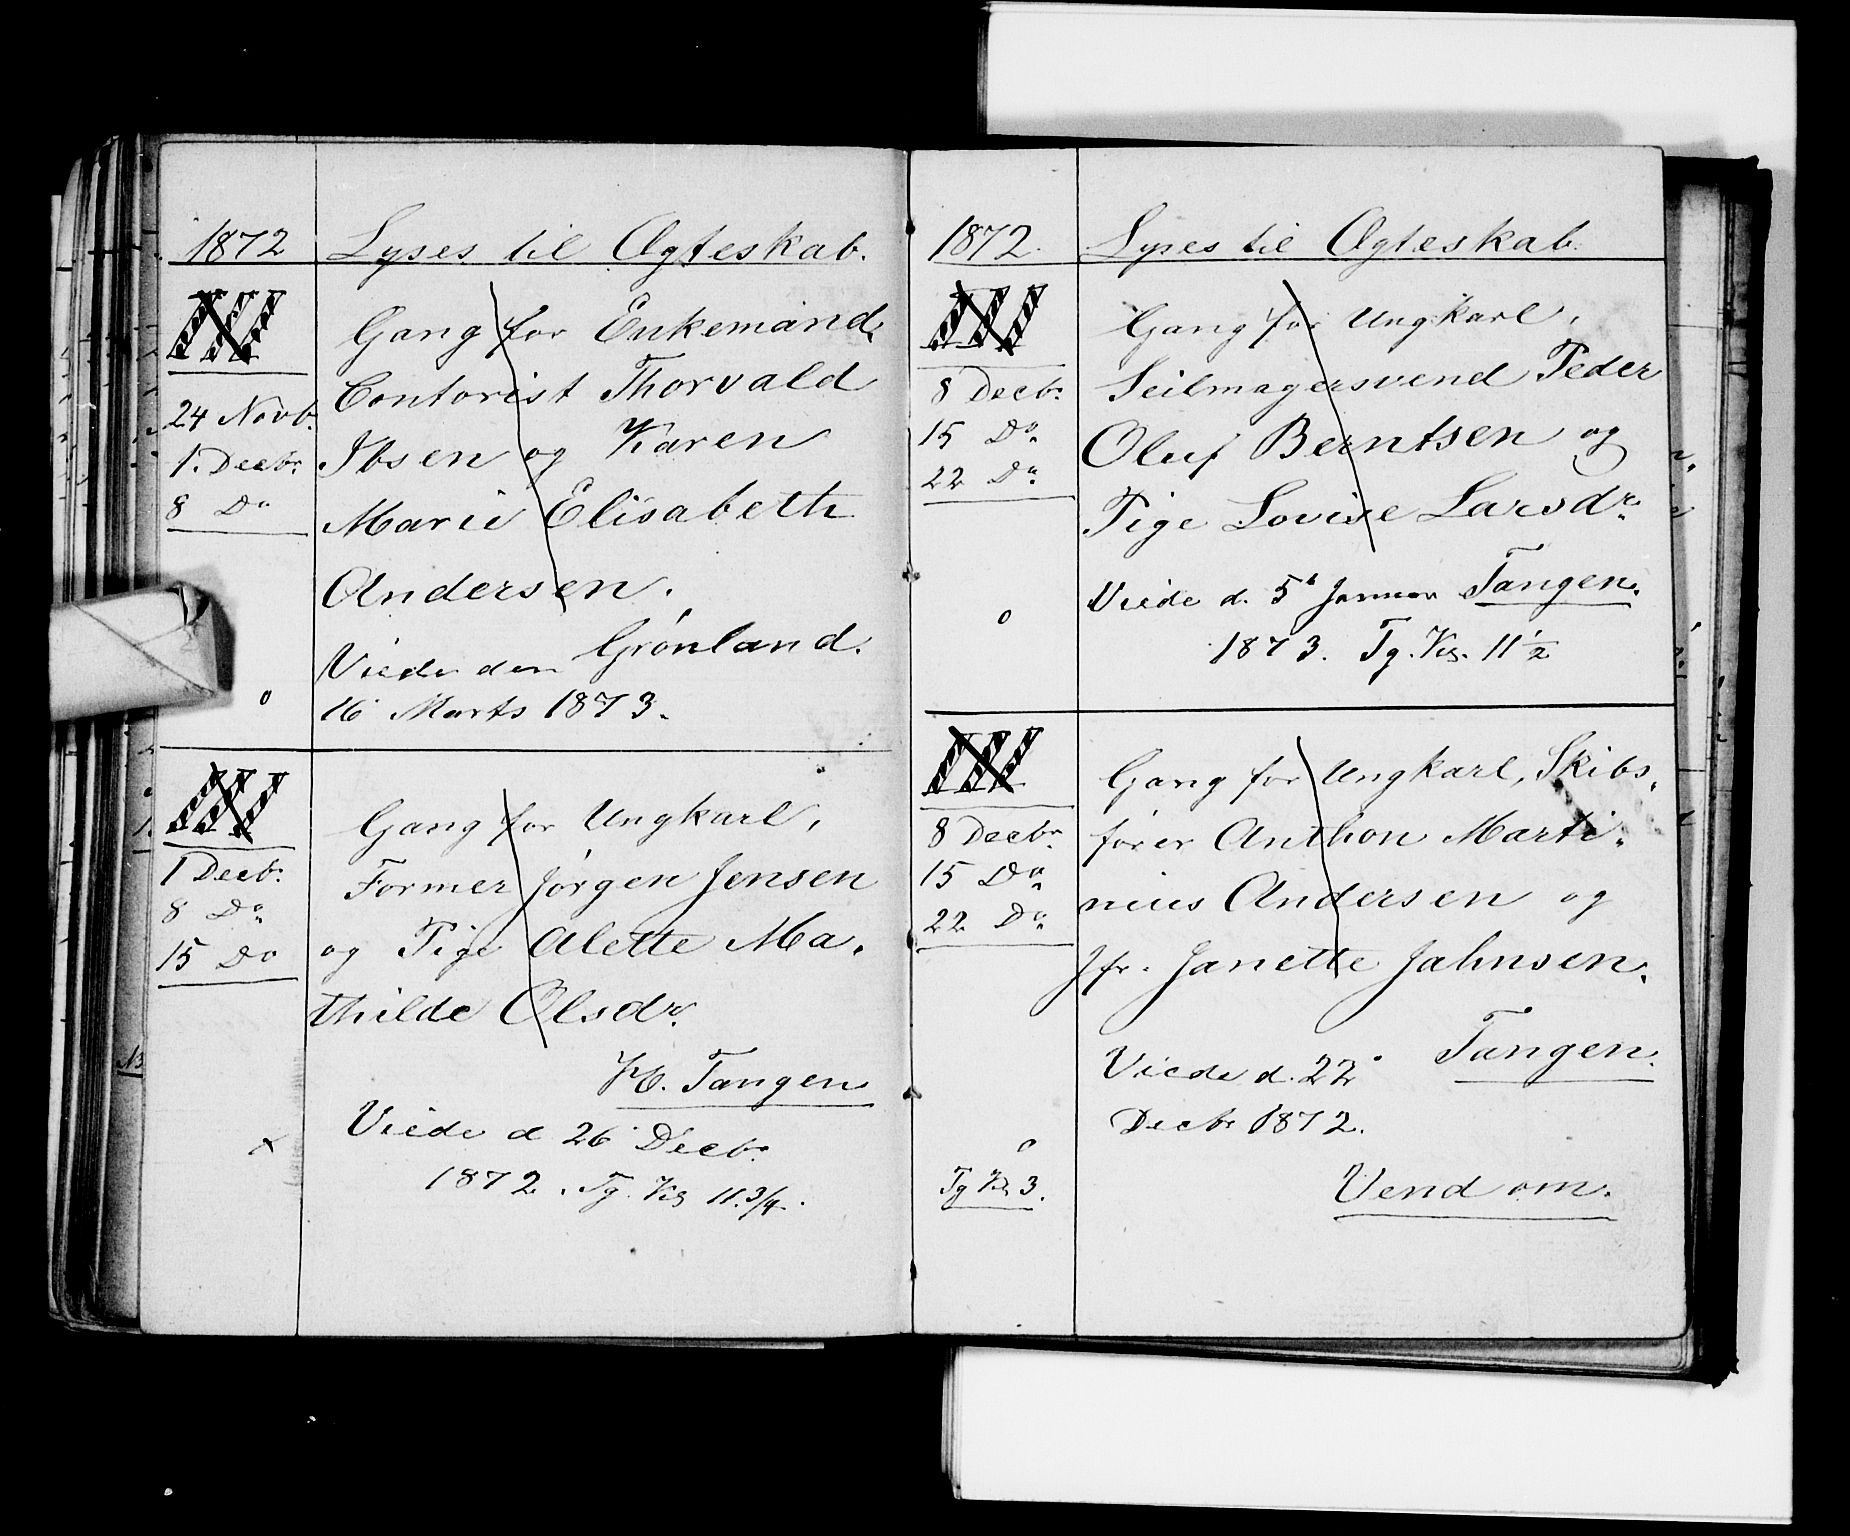 1872 Lyses til Ægteskab.
III
24 Novb.
1. Decbr
8 Do
Gang for Enkemand,
Contorist Thorvald
Ibsen og Karen
Marie Elisabeth
Andersen.
Grønland.
Viede den
16 Marts 1873.
III
1 Decbr.
8 Do
15 Do
Gang for Ungkarl,
Former Jørgen Jensen
og Tige Alette Ma-
thilde Olsdr.
H. Tangen
Viede d 26 Decbr.
1872. Tg. Kl 11.3/4.
1872. Lyses til Ægteskab.
III
8 Decbr.
15 Do
22 Do
Gang for Ungkarl,
Seilmagersvend Peder
Oluf Berntsen og
Pige Lovise Larsdr.
Viede d. 5t Januar Tangen.
1873. Tg. Kl. 11 1/2
III
8 Decbr.
15 Do
22 Do
Gang for Ungkarl, Skibs-
fører Anthon Marti-
nius Andersen og
Jfr. Janette Jahnsen.
Tangen.
Viede d. 22
Decbr 1872.
Tg Kl 3.
Vend om.